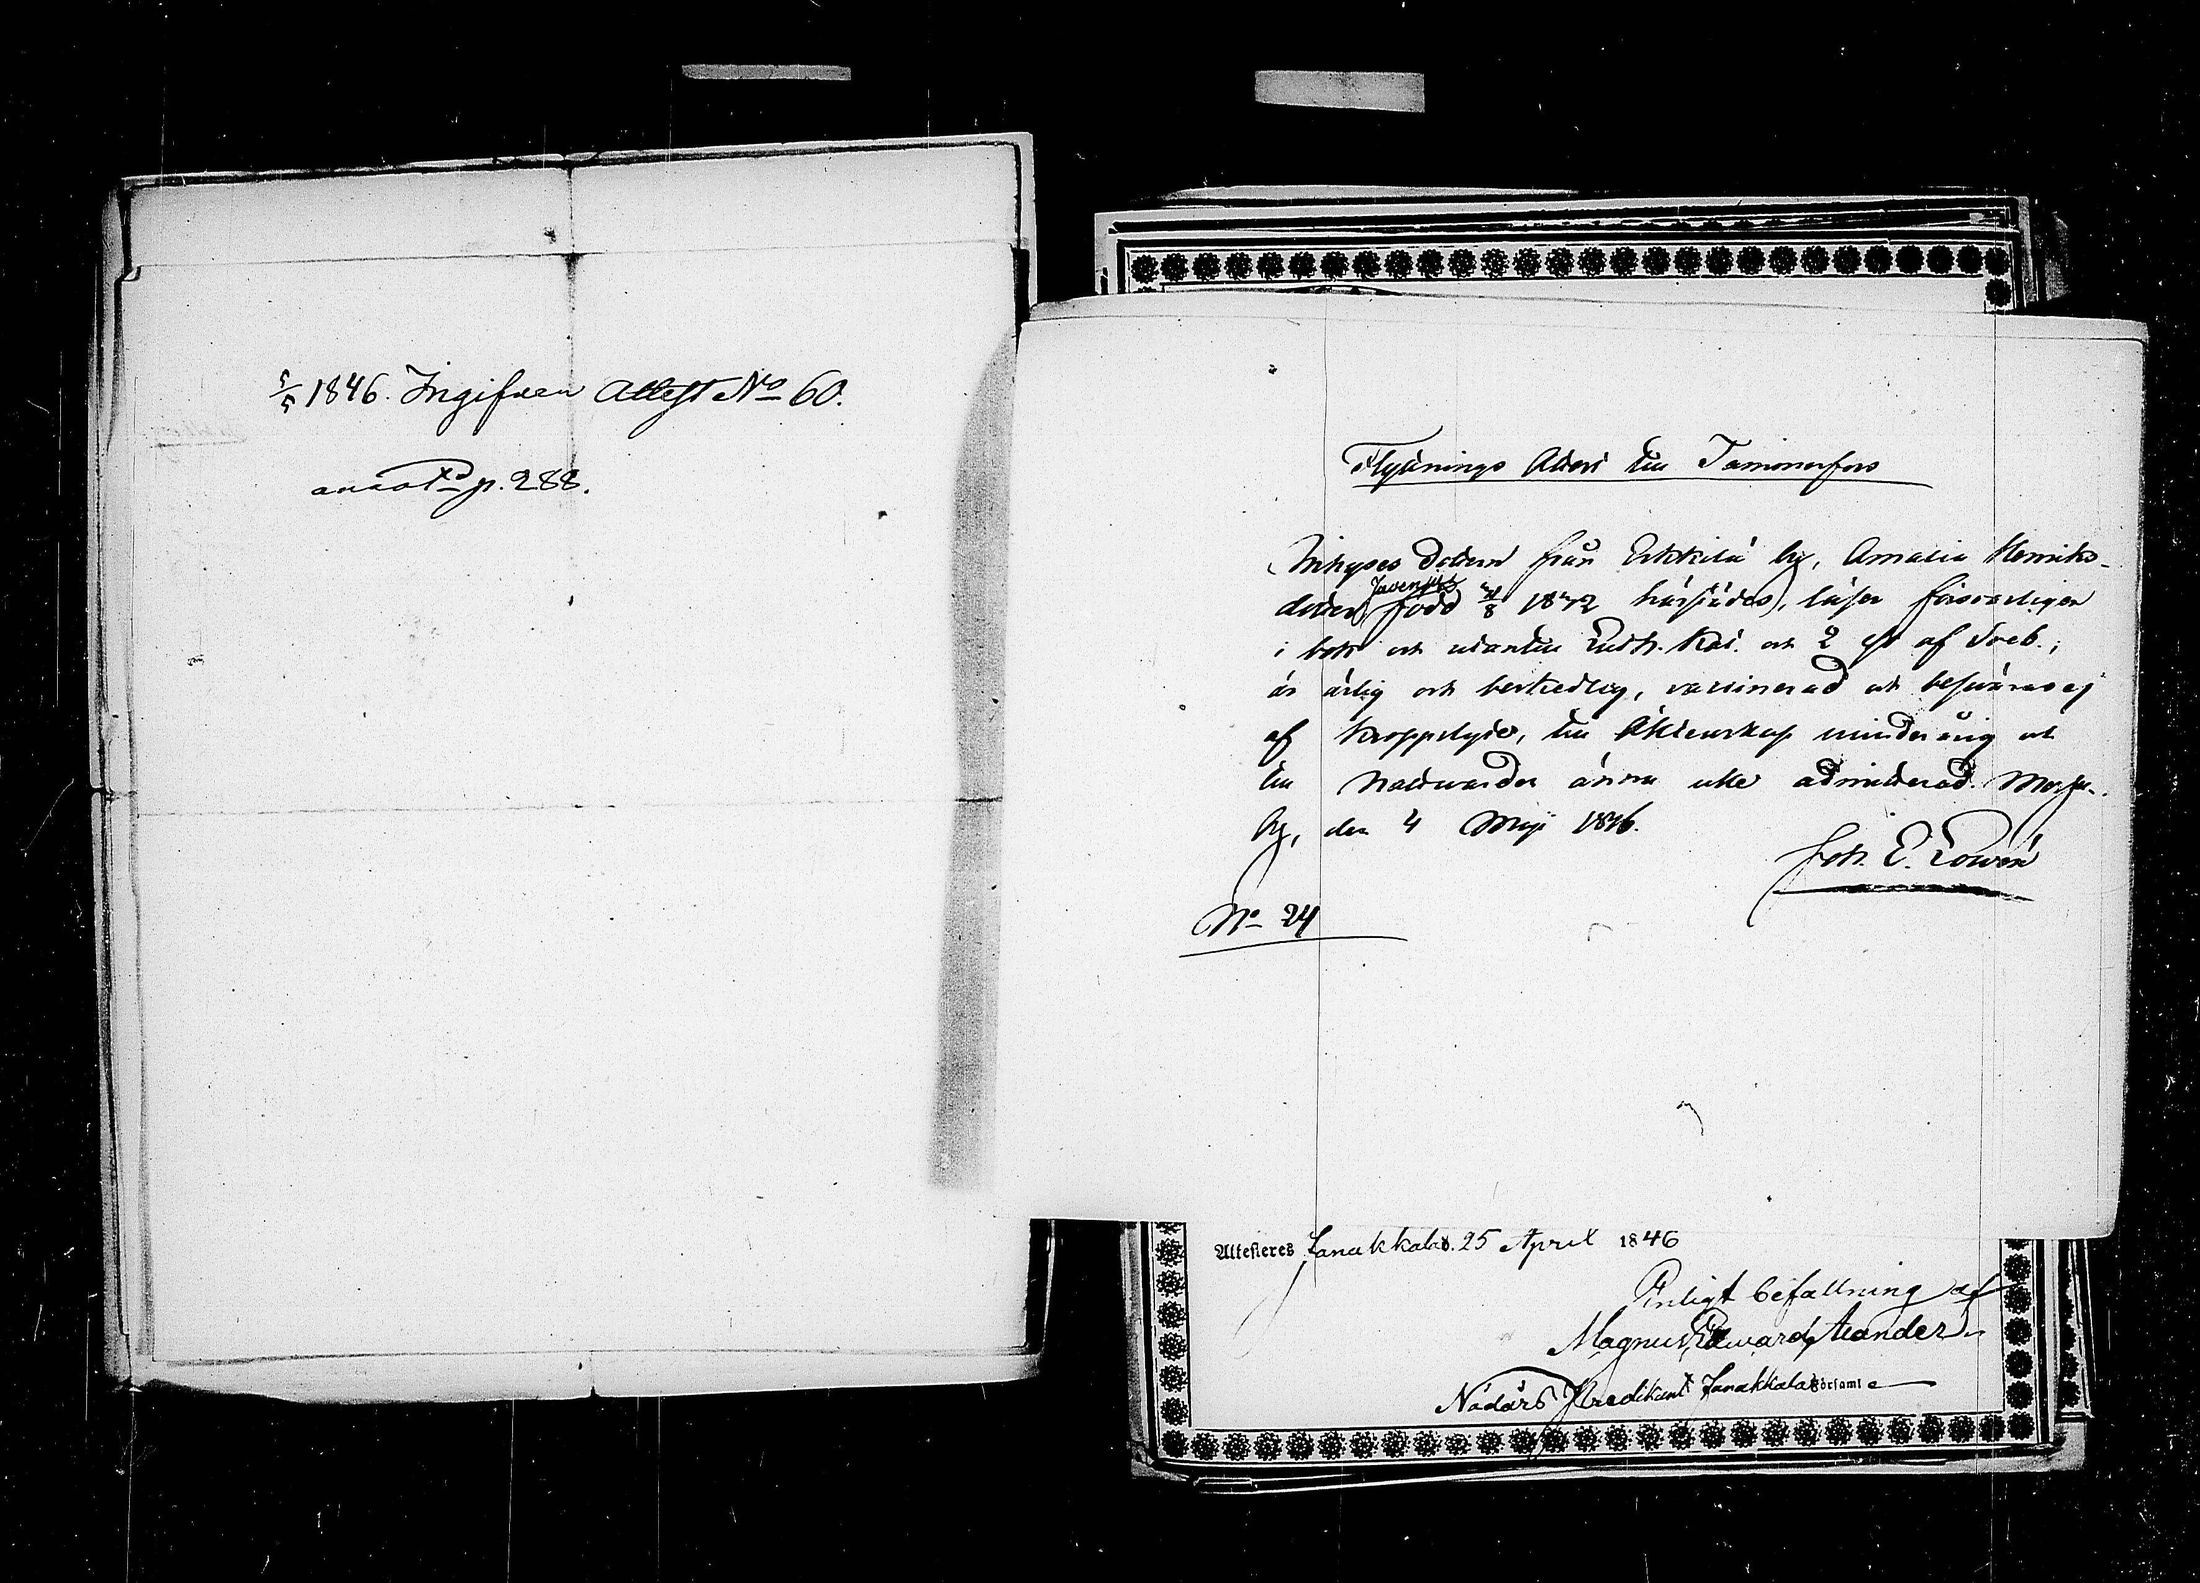 5/5 1846. Ingifven Attest No 60.
annot. p. 288.
Flyttnings Attest till Tammerfors
Inhyses dottern från Erkkilä by, Amalia Henriks-
dotter född 8 härstädes), läser försvarligen
i bok och utantill Luth. Kat. och 2 st af Sveb.;
är ärlig och beskedlig, vaccinerad och besväras ej
af kroppslyte, till Äktenskap minderårig och
till Nattvarden ännu icke admitterad. Mess-
by, den 4 Maji 1846.
Joh. E.
No 24
Attesteres Janakkala d. 25 April 1846
Enligt befallning af
Magnus Edward Alander
Nådårs Predikant i Janakkala Församl